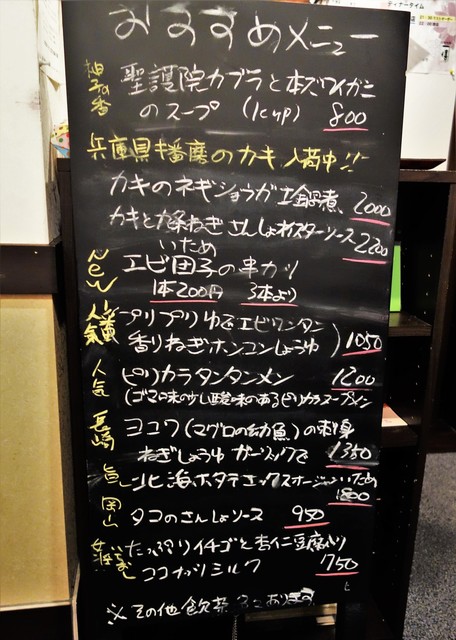 おすすめメニュー
聖護院カブラと本ズワイガニ
のスープ (1cup) 800
兵庫県播磨のカキ入荷中!!
カキのネギショウガ土鍋煮 2000
カキと九条ねぎ さんしょオイスターソース 2200
いため
New エビ団子の串カツ
1本200円 3本より
人気 プリプリゆでエビワンタン
香りねぎホンコンしょうゆ 1050
人気 ピリカラタンタンメン 1200
(ゴマ味の少し酸味のあるピリカラスープメン
長崎 ヨコワ(マグロの幼魚)の刺身
ねぎしょうゆ ガーリックで 1350
北海ホタテエックスオージャンいため
1800
岡山 タコのさんしょソース 950
たっぷりイチゴと杏仁豆腐入り
ココナッツミルク 750
※その他飲茶もございます